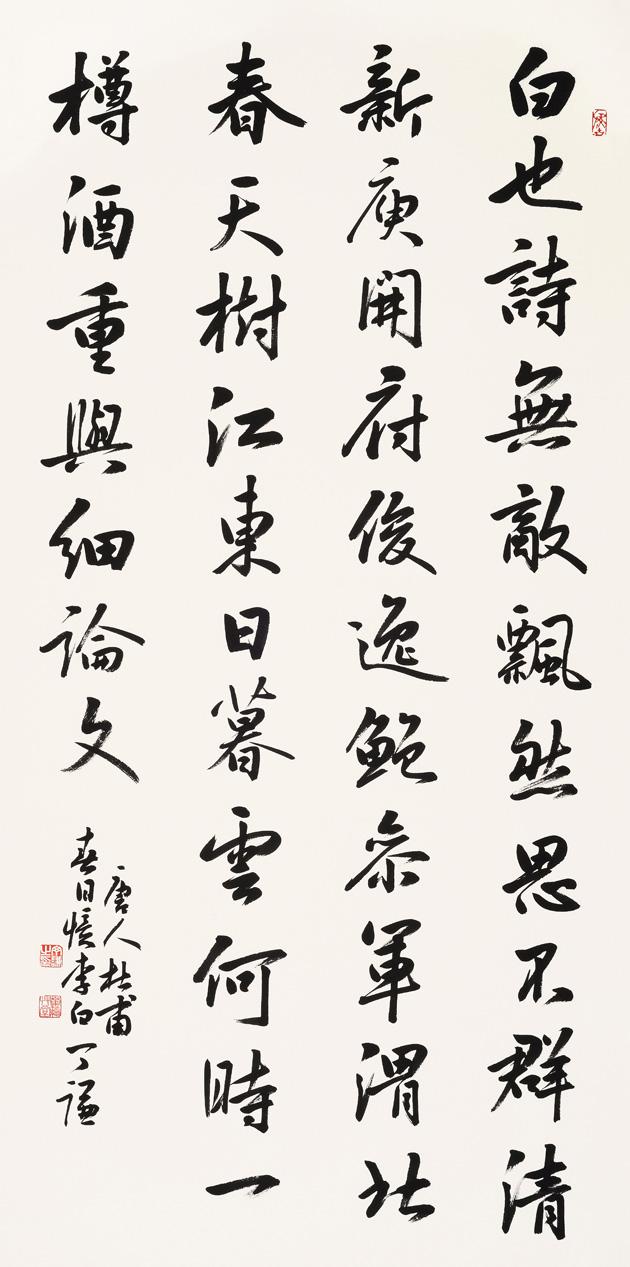 白也詩無敵飄然思不群清
新庾開府俊逸鮑参軍渭北
春天樹江東日暮雲何時一
樽酒重與細論文
唐人杜甫
春日憶李白 丁謙